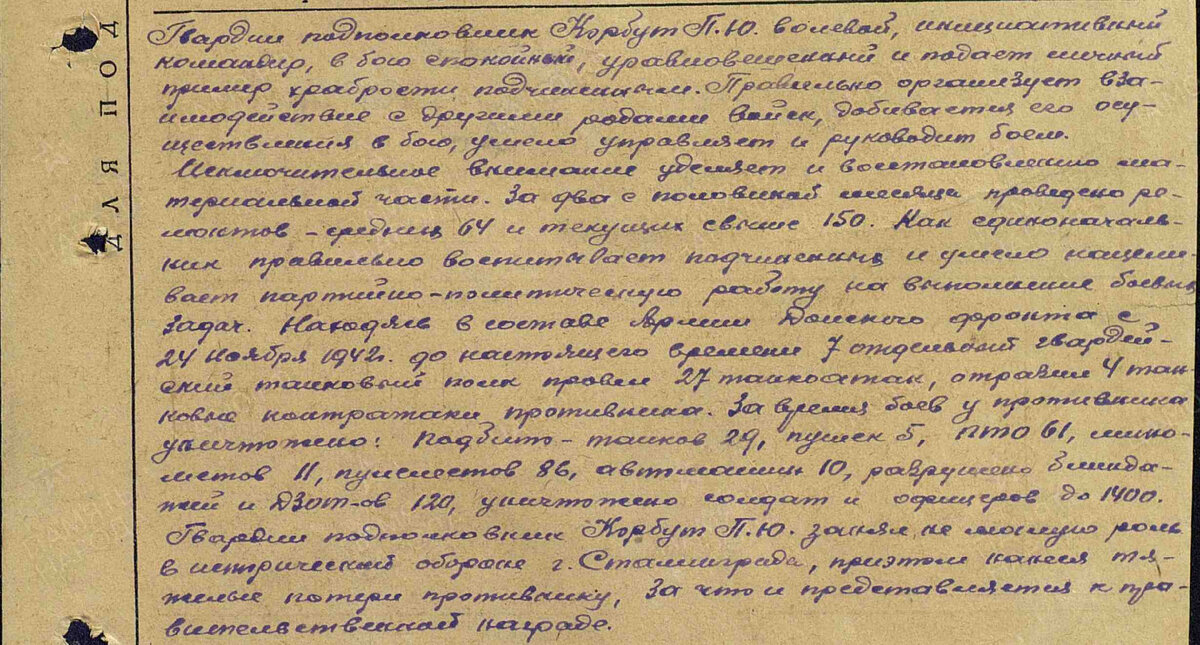 Гвардии подполковник Корбут П.Ю. волевой, инициативный
командир, в бою спокойный, уравновешенный и подает личный
пример храбрости подчиненным. Правильно организует вза-
имодействие с другими родами войск, добивается его осу-
ществления в бою, умело управляет и руководит боем.
Исключительное внимание уделяет и восстановлению ма-
териальной части. За два с половиной месяца проведено ре-
монтов - средних 64 и текущих свыше 150. Как единоначаль-
ник правильно воспитывает подчиненных и умело нацели-
вает партийно-политическую работу на выполнение боевых
задач. Находясь в составе Армии Донского фронта с
24 ноября 1942г. до настоящего времени 7 отдельный гвардей-
ский танковый полк провел 27 танкоатак, отразил 4 тан-
ковые контратаки противника. За время боев у противника
уничтожено: Подбито - танков 29, пушек 5, ПТО 61, мино-
метов 11, пулеметов 86, автомашин 10, разрушено блинда-
жей и ДЗОТ-ов 120, уничтожено солдат и офицеров до 1400.
Гвардии подполковник Корбут П.Ю. занял не малую роль
в исторической обороне г. Сталинграда, приэтом нанеся тя-
желые потери противнику, за что и представляется к пра-
вительственной награде.
ДЛЯ ПОД